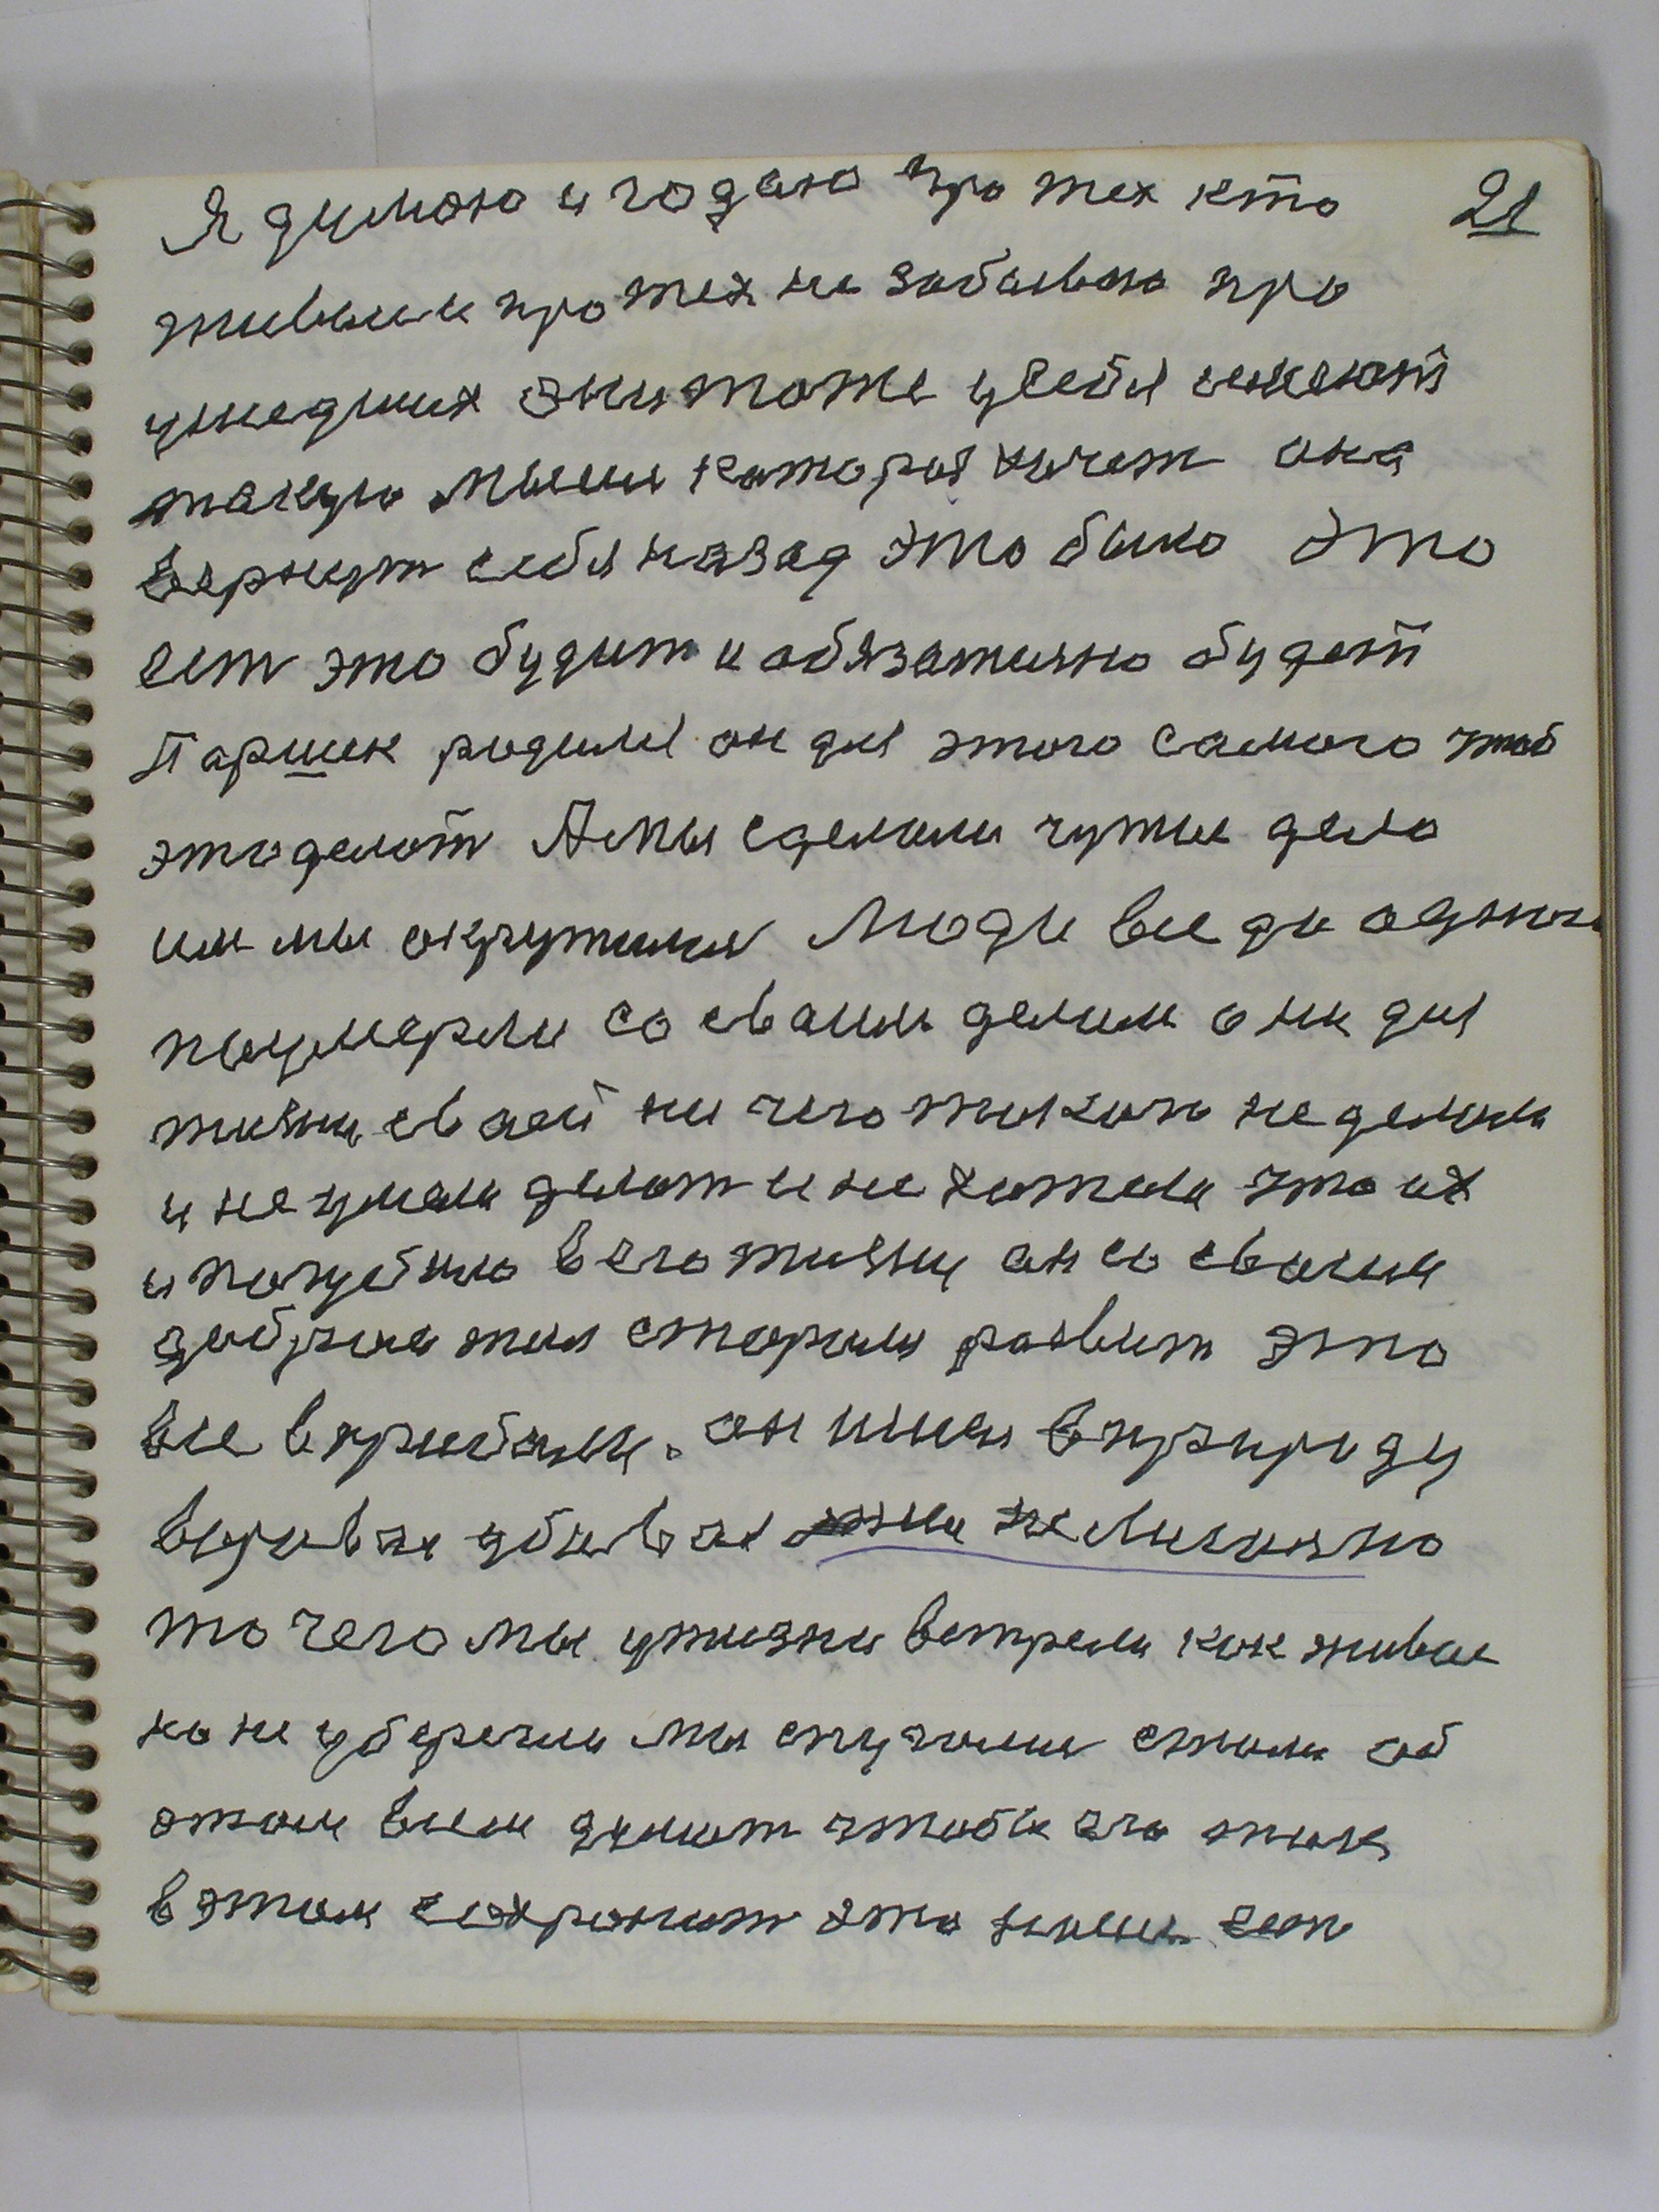 Я думаю и гадаю про тех кто 21
живыи и про тех не забываю про
ушедших Они тоже у себя имеют
такую мысль которая хочет она
вернут себя назад это было Это
ест это будит и обязатильно будет
Паршек родилсе он для этого самого чтоб
это делат А мы сделали чужые дело
им мы окружилис Люди все до одног
поумерли со сваим делам они для
жизни сваей ни чего такого не делали
и не умели делат и не хотели что их
и погубило в его жизни он со сваим
добрые жил старался развит это
все в прибыли. он шол в природу
воровал убивал не Лигально
то чего мы у жизни встрели как живое
но не уберегли мы случаем стали об
этом всем думат чтобы его так
в этом сохранит это наше сам